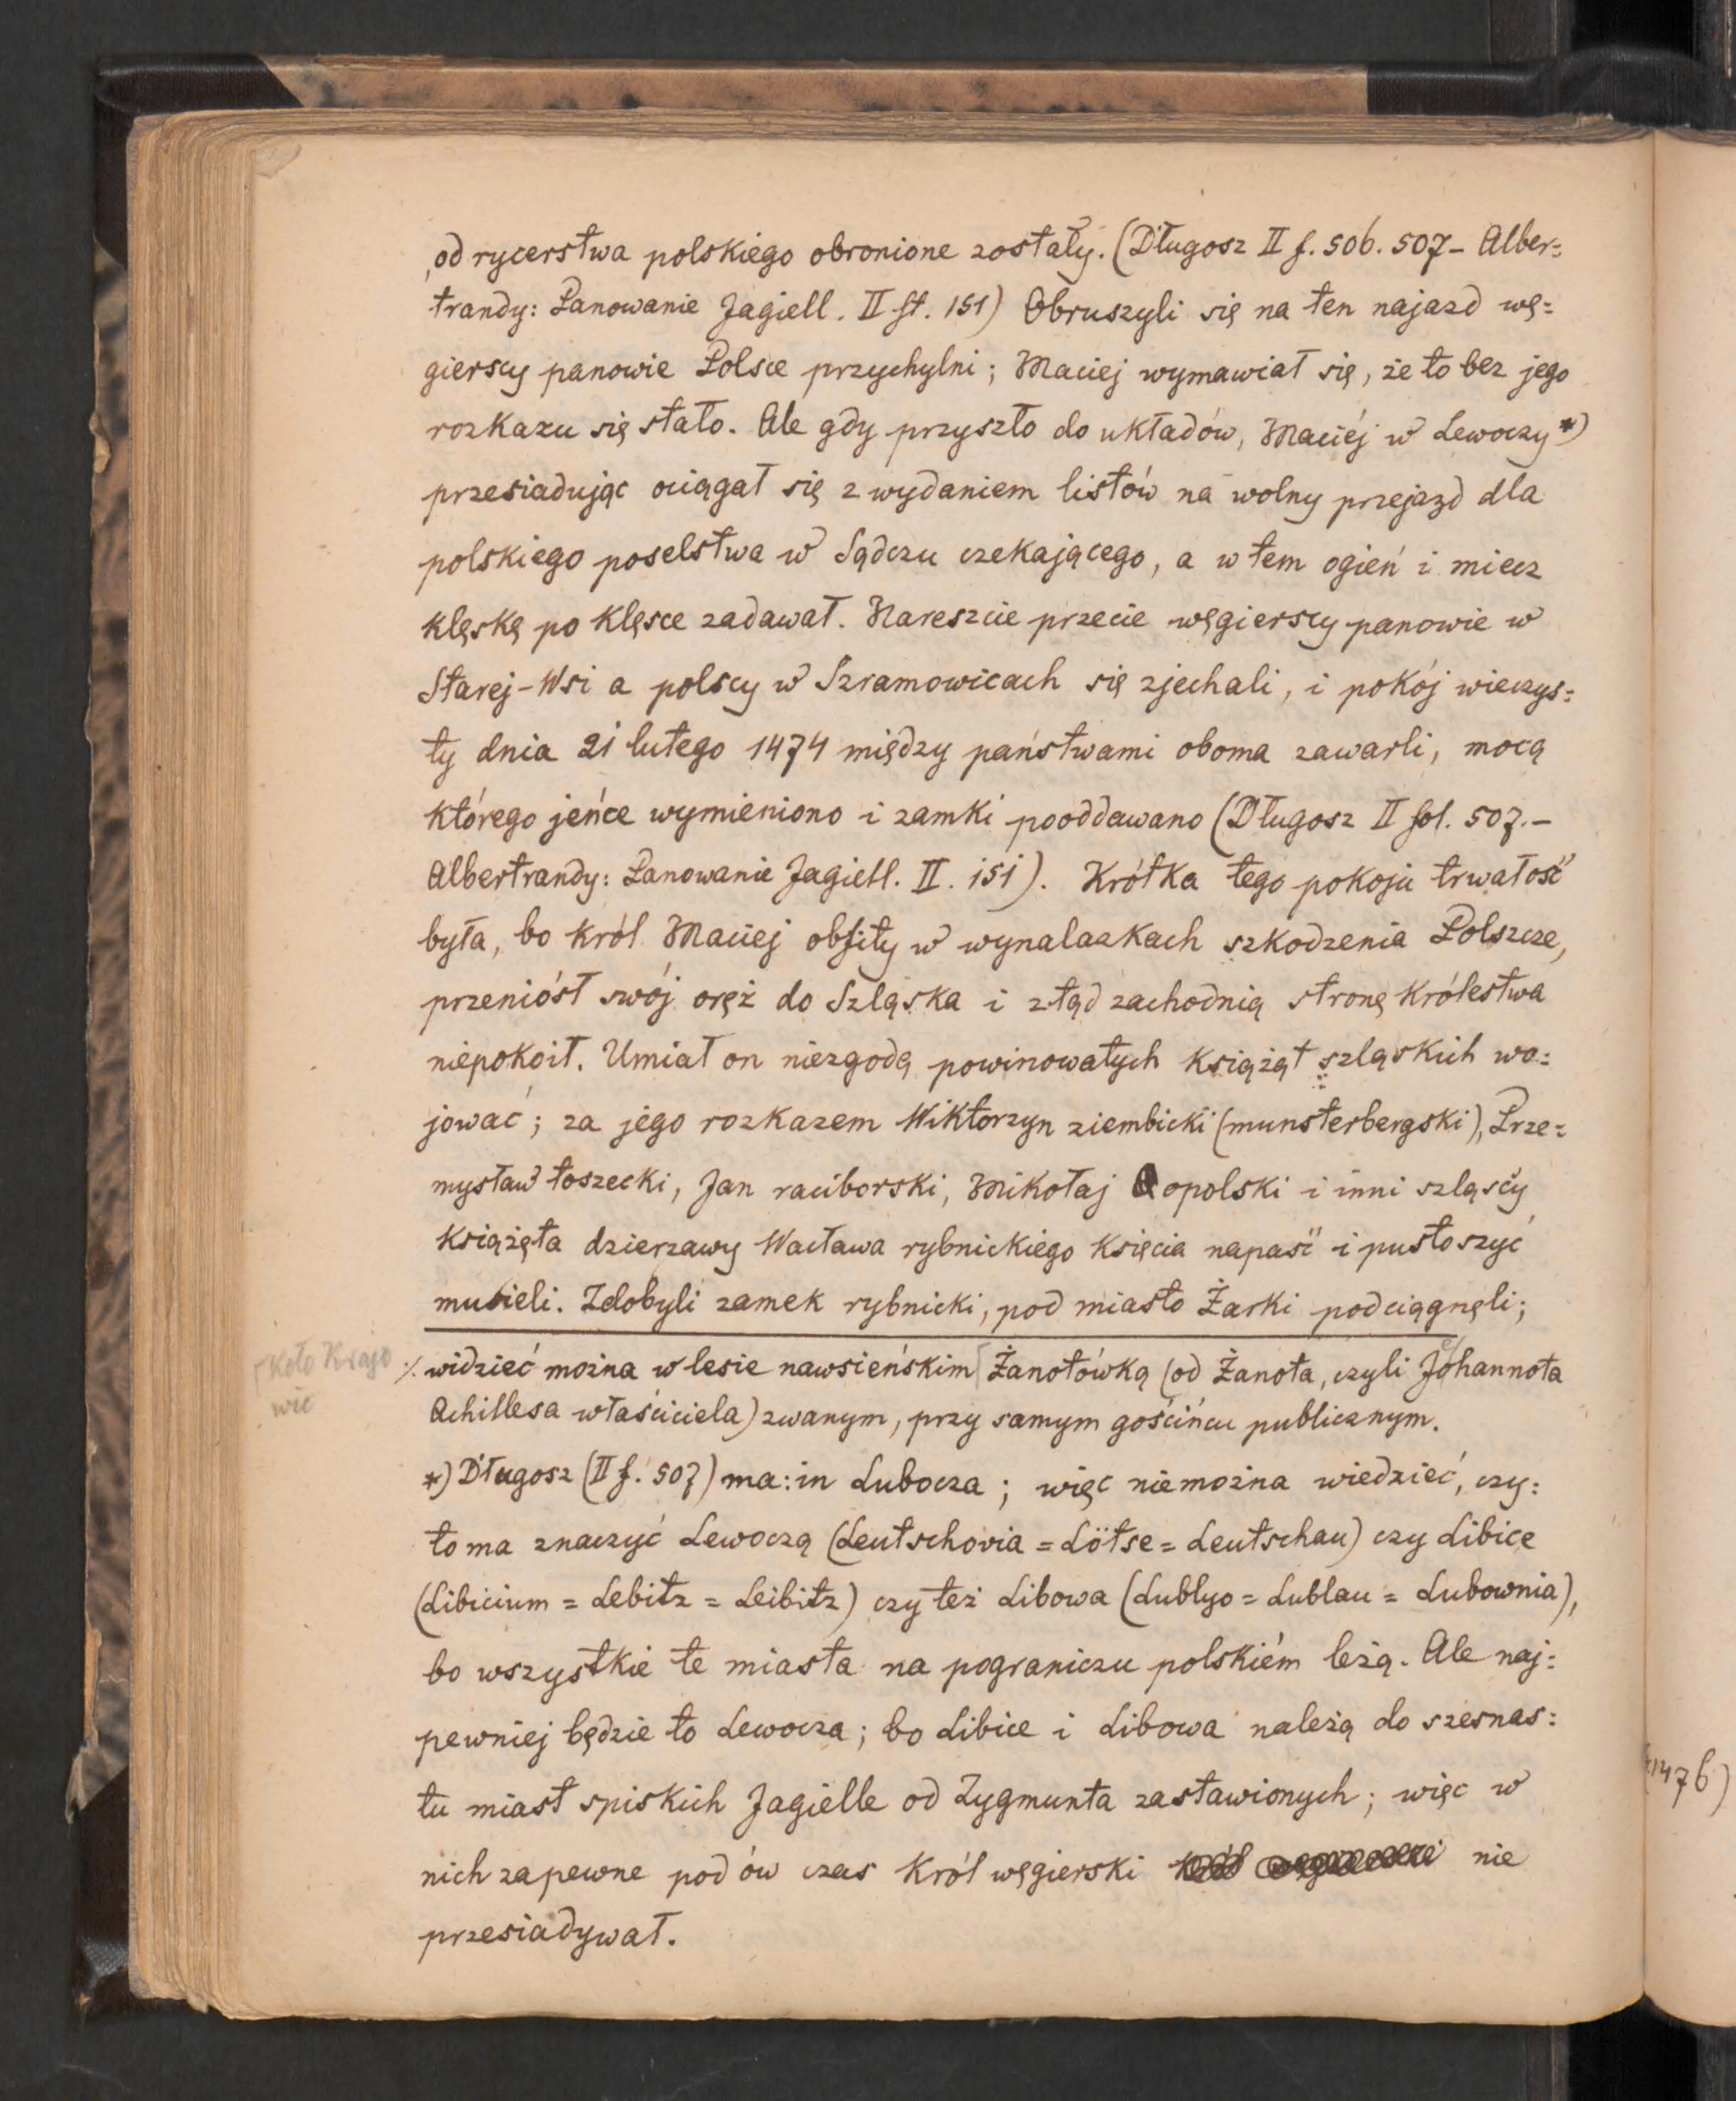 od rycerstwa polskiego obronione zostały. (Długosz II f. 506. 507 – Alber=
trandy: Panowanie Jagiell. II st. 151) Obruszyli się na ten najazd wę=
gierscy panowie Polsce przychylni; Maciej wymawiał się, że to bez jego
rozkazu się stało. Ale gdy przyszło do układów, Maciéj w Lewoczy *)
przesiadując ociągał się z wydaniem listów na wolny przejazd dla
polskiego poselstwa w Sądczu czekającego, a w tem ogień i miecz
klęskę po klęsce zadawał. Nareszcie przecie węgierscy panowie w
Starej-Wsi a polscy w Szramowicach się zjechali, i pokój wieczys=
ty dnia 21 lutego 1474 między państwami oboma zawarli, mocą
którego jeńce wymieniono i zamki pooddawano (Długosz II fol. 507. –
Albertrandy: Panowanie Jagiell. II. 151). Krótka tego pokoju trwałość
była, bo król Maciej obfity w wynalazkach szkodzenia Polszcze,
przeniósł swój oręż do Szląska i ztąd zachodnią stronę królestwa
niepokoił. Umiał on niezgodą powinowatych książąt szląskich wo=
jować; za jego rozkazem Wiktorzyn ziembicki (munsterbergski), Prze=
mysław toszecki, Jan raciborski, Mikołaj opolski i inni szląscy
książęta dzierzawy Wacława rybnickiego księcia napaść i pustoszyć
musieli. Zdobyli zamek rybnicki, pod miasto Żarki podciągnęli;
koło Krajo
wic
·/. widzieć można w lesie nawsieńskim Żanotówką (od Żanota, czyli Johannota
Achillesa właściciela) zwanym, przy samym gościńcu publicznym.
*) Długosz (II f. 507) ma: in Lubocza; więc niemożna wiedzieć, czy=
to ma znaczyć Lewoczą (Leutschovia = Lötse = Leutschau) czy Libice
(Libicium = Lebitz = Leibitz) czy też Libowa (Lublyo = Lublau = Lubownia),
bo wszystkie te miasta na pograniczu polskiém leżą. Ale naj=
pewniej będzie to Lewocza; bo Libice i Libowa należą do szesnas=
tu miast spiskich Jagielle od Zygmunta zastawionych; więc w
nich zapewne pod ów czas król węgierski nie
przesiadywał.
1476)